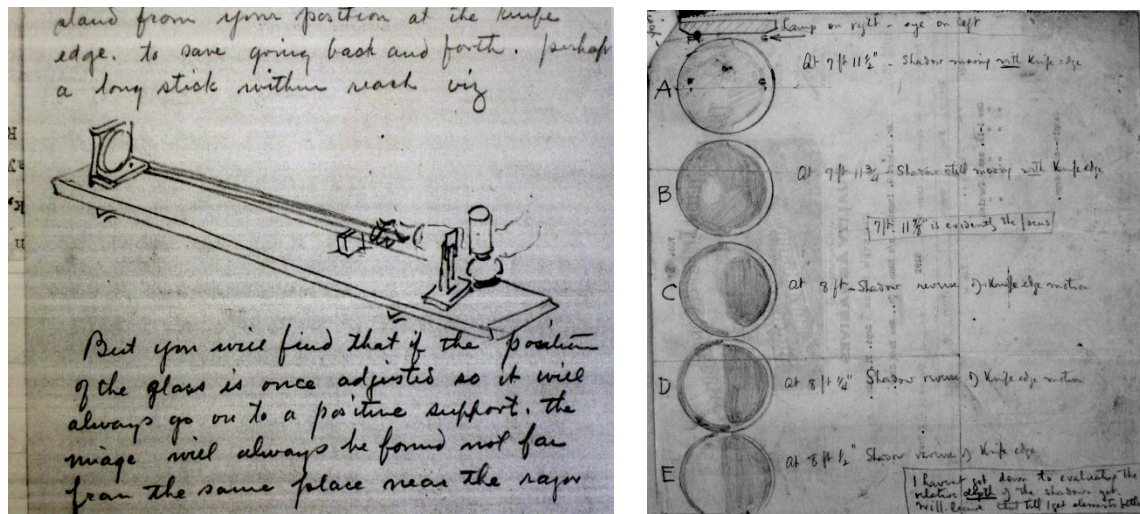 stand from your position at the knife
edge. to save going back and forth. perhaps
a long stick within reach viz
But you will find that if the position
of the glass is once adjusted so it will
always go on to a positive support. the
image will always be found not far
from the same place near the razor
Lamp on right - eye on left
A
At 7 ft 11 1/2" - Shadow moving with Knife edge
B
At 7 ft 11 3/4" - Shadow still moving with Knife edge
7 ft 11 7/8" is evidently the focus
C
At 8 ft - Shadow reverse of Knife edge motion
D
At 8 ft 1/4" Shadow reverse of Knife edge motion
E
At 8 ft 1/2" Shadow reverse of Knife edge
I havent got down to evaluating the
relative depth of the shadows yet.
Will leave that till I get